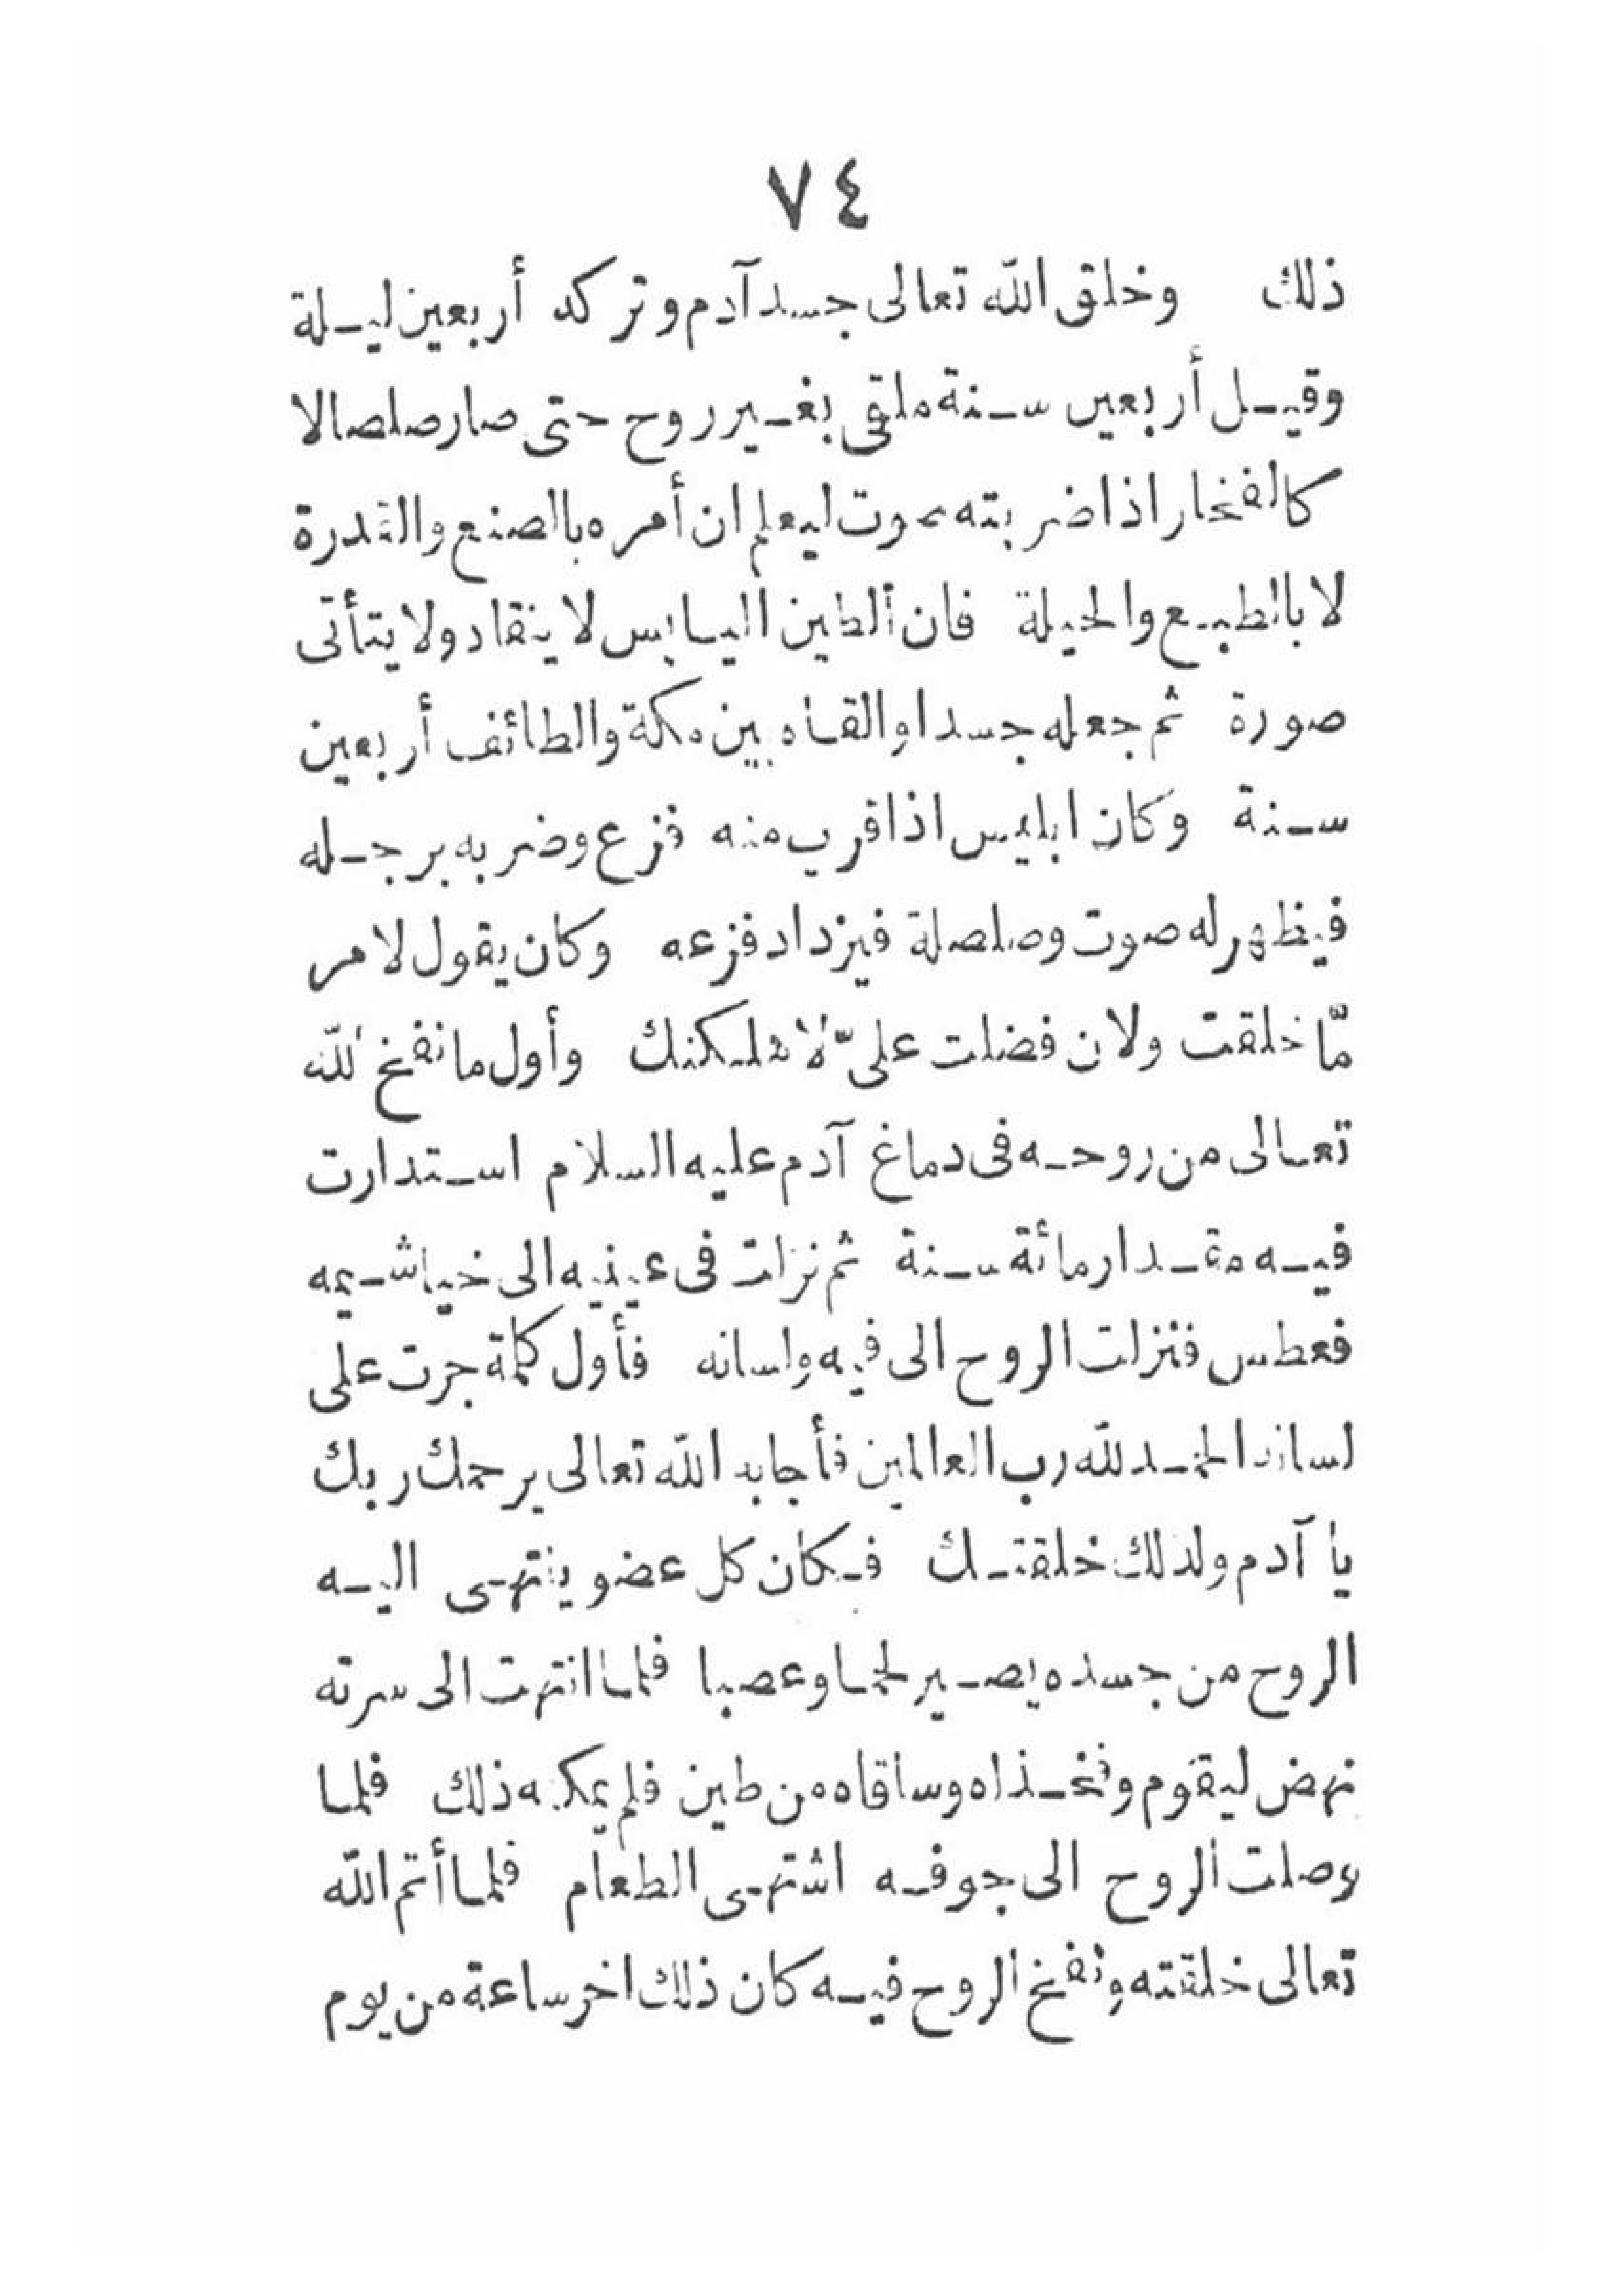 ٧٤
ذلك وخلق الله تعالى جسد آدم وتركه أربعين ليلة
وقيل أربعين سنة ملقى بغير روح حتى صار صلصالا
كالفخار اذا ضربته صوت ليعلم ان أمره بالصنع والقدرة
لا بالطبع والحيلة فان الطين اليابس لا ينقاد ولا يتأتى
صورة ثم جعله جسدا وألقاه بين مكة والطائف أربعين
سنة وكان ابليس اذا قرب منه فزع وضربه برجله
فيظهر له صوت وصلصلة فيزداد فزعه وكان يقول لامر
مّا خلقت ولان فضلت علىّ لا هلكنك وأول ما نفخ الله
تعالى من روحه فى دماغ آدم عليه السلام استدارت
فيه مقدار مائة سنة ثم نزلت فى عينيه الى خياشيمه
فعطس فنزلت الروح الى فيه ولسانه فأول كلمة جرت على
لسانه الحمد لله رب العالمين فأجابه الله تعالى يرحمك ربك
يا آدم ولذلك خلقتك فكان كل عضو ينتهى اليه
الروح من جسده يصير لحما وعصبا فلما انتهت الى سرته
نهض ليقوم وفخذاه وساقاه من طين فلم يمكنه ذلك فلما
وصلت الروح الى جوفه اشتهى الطعام فلما أتم الله
تعالى خلقته ونفخ الروح فيه كان ذلك اخر ساعة من يوم